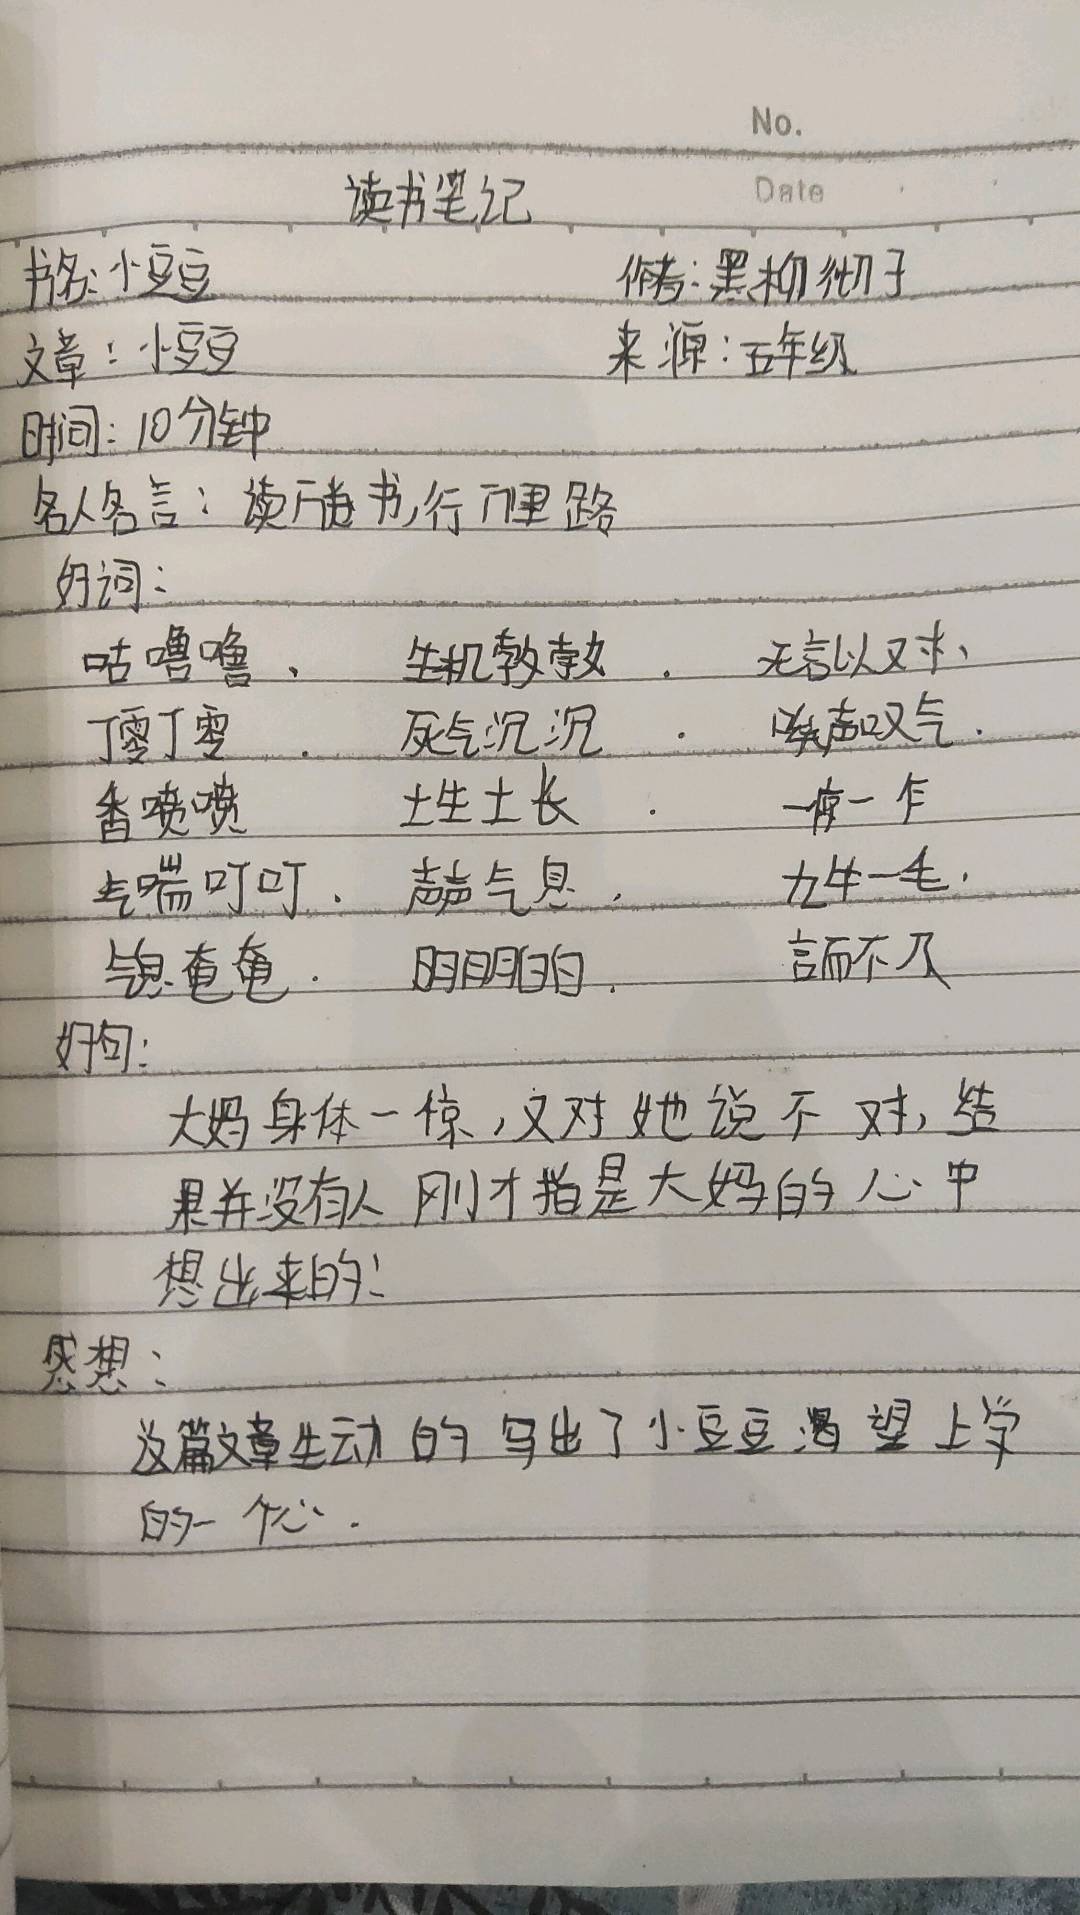 No.
读书笔记 Date
书名:小豆豆 作者:黑柳彻子
文章:小豆豆 来源:五年级
时间:10分钟
名人名言:读万卷书,行万里路
好词:
咕噜噜、生机勃勃.无言以对、
丁零丁零.死气沉沉.唉声叹气.
香喷喷 土生土长.一惊一乍
气喘叮叮.声声气息.九牛一毛.
气息奄奄.明明白白.言而不及
好句:
大妈身体一惊,又对她说不对,结
果并没有人刚才指是大妈的心中
想出来的!
感想:
这篇文章生动的写出了小豆豆渴望上学
的一个心.